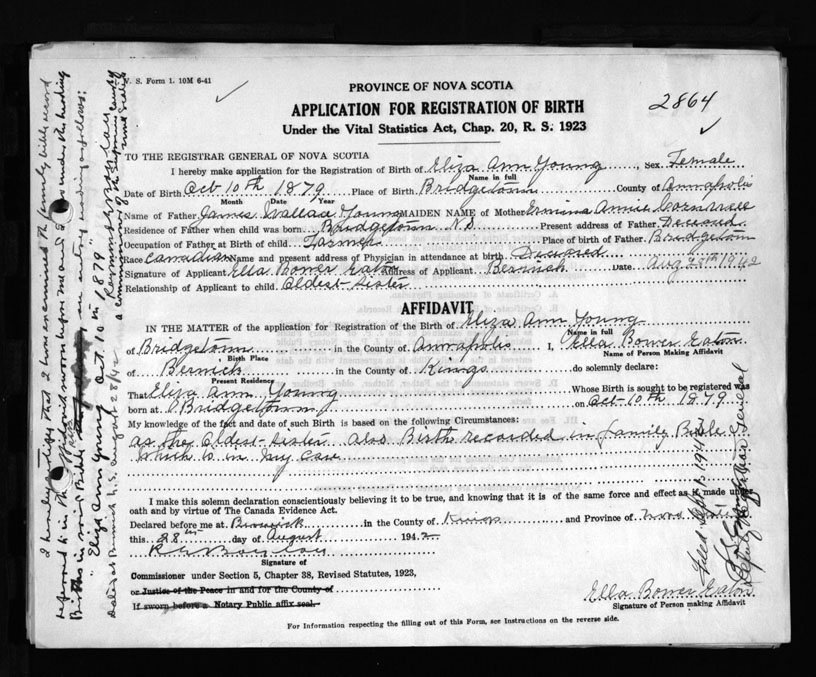 V. S. Form 1. 10M 6-41
PROVINCE OF NOVA SCOTIA
2864
APPLICATION FOR REGISTRATION OF BIRTH
Under the Vital Statistics Act, Chap. 20, R. S. 1923
TO THE REGISTRAR GENERAL OF NOVA SCOTIA
I hereby make application for the Registration of Birth of Eliza Ann Young, Sex Female
Name in full
Date of Birth Oct 10th 1879 Place of Birth Bridgetown County of Annapolis
Month Date Year
Name of Father James Wallace Young MAIDEN NAME of Mother Ermina Annie
Residence of Father when child was born Bridgetown N.S Present address of Father Deceased
Occupation of Father at Birth of child Farmer Place of birth of Father Bridgetown
Race Canadian Name and present address of Physician in attendance at birth Deceased
Signature of Applicant Ella Bower Eaton Address of Applicant Berwick Date Aug 28th 1942
Relationship of Applicant to child Oldest Sister
AFFIDAVIT
IN THE MATTER of the application for Registration of the Birth of Eliza Ann Young
Name in full
of Bridgetown in the County of Annapolis I, Ella Bower Eaton
Birth Place Name of Person Making Affidavit
of Berwick in the County of Kings do solemnly declare:
Present Residence
That Eliza Ann Young Whose Birth is sought to be registered was
born at Bridgetown on Oct 10th 1879
My knowledge of the fact and date of such Birth is based on the following Circumstances:
as the oldest sister also Birth recorded in family Bible
which is in my care
I make this solemn declaration conscientiously believing it to be true, and knowing that it is of the same force and effect as if made under
oath and by virtue of The Canada Evidence Act.
Declared before me at Berwick in the County of Kings and Province of Nova Scotia
this 28th day of August 1942
Signature of
Commissioner under Section 5, Chapter 38, Revised Statutes, 1923,
or Justice of the Peace in and for the County of
If sworn before a Notary Public affix seal.
Ella Bower Eaton
Signature of Person making Affidavit
For Information respecting the filling out of this Form, see Instructions on the reverse side.
I hereby certify that I have examined the family bible record
referred to in the affidavit sworn before me and under the heading
Births in said Bible an entry reading as follows:
"Eliza Ann Young Oct. 10th 1879"
Dated at Berwick N.S. August 28th 1942
a commissioner of the Supreme Court of
Nova Scotia
Filed Sept 1942
Deputy Registrar General